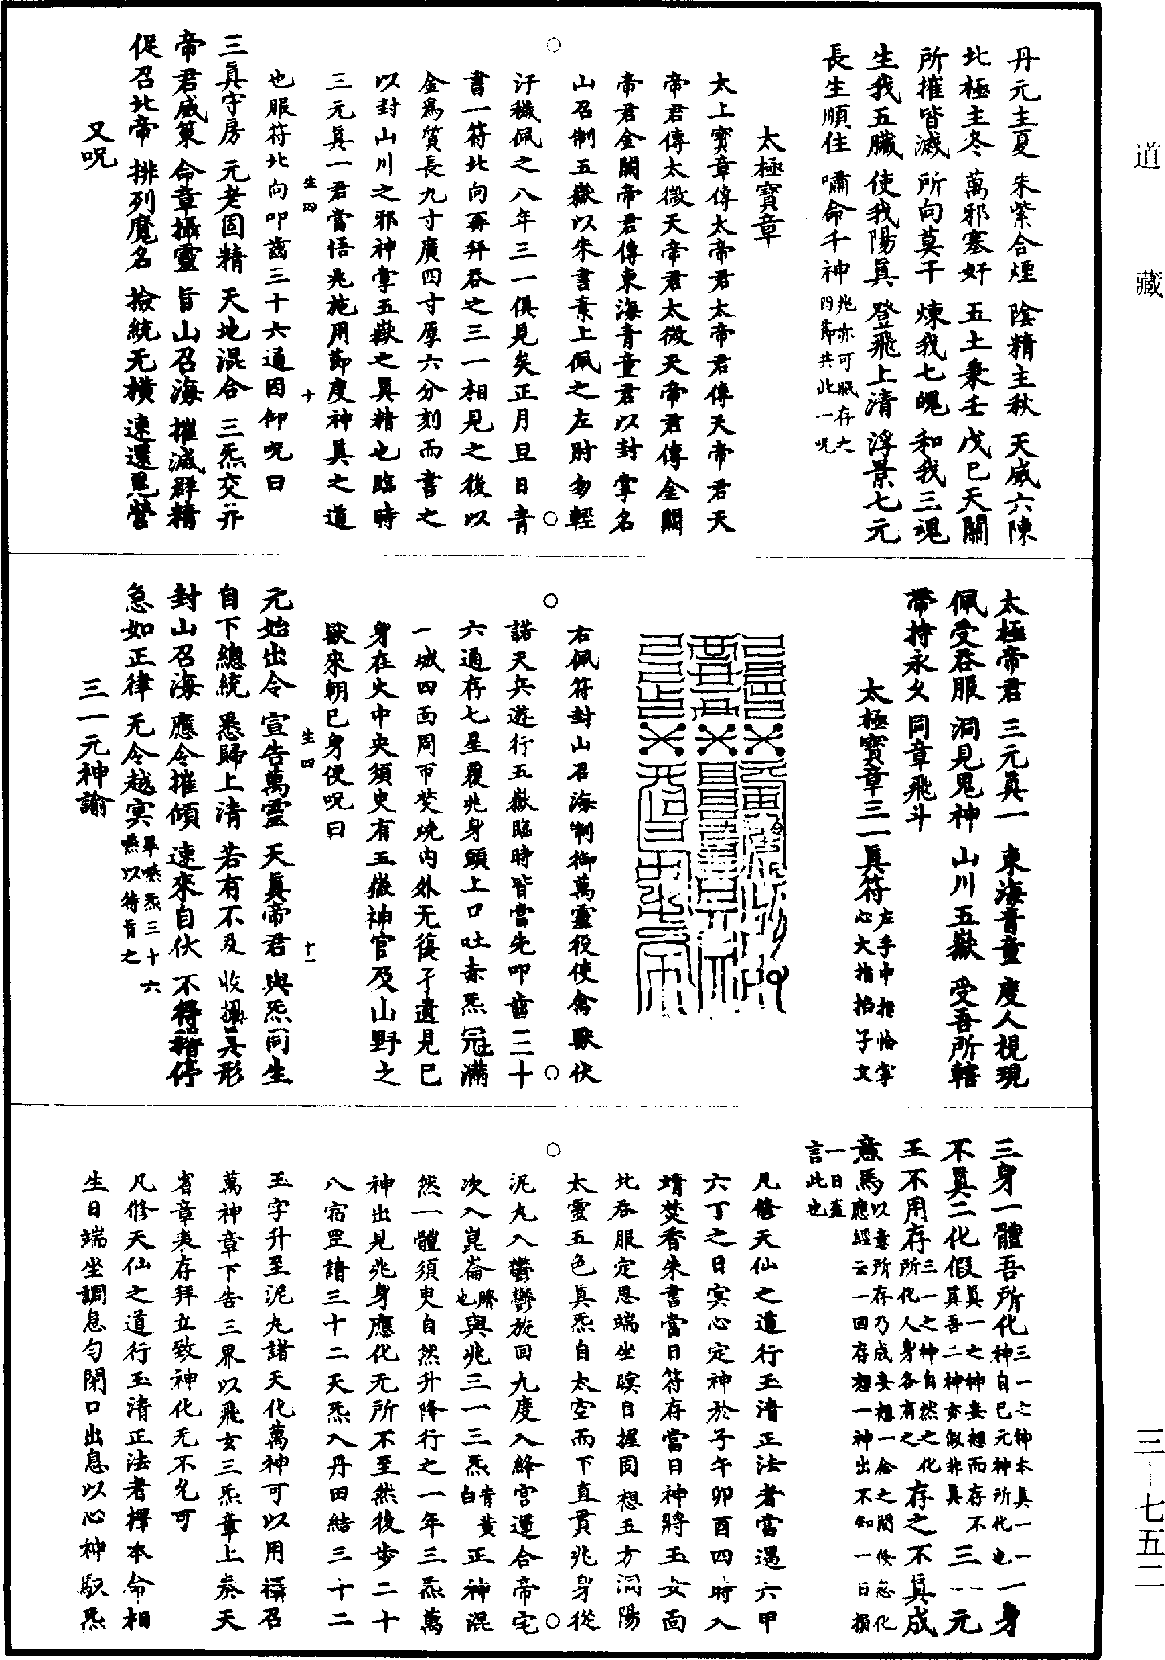 道藏
三—七五二
丹元主夏　朱紫合煙　陰精主秋　天威六陳
北極主冬　萬邪塞奸　五土乗壬　戊巳天關
所摧皆滅　所向莫干　煉我七魄　和我三魂
生我五臟　使我陽真　登飛上清　浮景七元
長生順住　嘯命千神兆亦可眠存之内𫝆共此一呪
太極寶章
太上寶章傳太帝君太帝君傳天帝君天
帝君傳太微天帝君太微天帝君傳金闕
帝君金闕帝君傳東海青童君以封掌名
山召制五嶽以朱書素上佩之左肘勿輕
汙穢佩之八年三一俱見矣正月旦日青
書一符北向再拜吞之三一相見之後以
金爲質長九寸廣四寸厚六分刻而書之
以封山川之邪神掌五嶽之真精也臨時
三元真一君當悟兆施用節度神真之道
生四　十
也服符北向叩齒三十六通因仰呪曰
三真守房　元老固精　天地混合　三炁交并
帝君威策　命章攝靈　旨山召海　摧滅群精
促召北帝　排列魔名　撿統无橫　速還鬼營
又呪
太極帝君　三元真一　東海青童　度人視現
佩受吞服　洞見鬼神　山川五嶽　受吾所轄
帶持永久　同章飛斗
太極寶章三一真符左手中指恪掌心大指掐子文
右佩符封山召海制御萬靈役使禽獸伏
諸天兵遊行五嶽臨時皆當先叩齒三十
六通存七星覆兆身頭上口吐赤炁冠滿
一城四面同帀焚燒内外无復孑遺見巳
身在火中央須臾有五嶽神官及山野之
獸來朝已身便呪曰
生四　十一
元始出令　宣告萬靈　天真帝君　與炁同生
自下總統　悉歸上清　若有不及　收攝真形
封山召海　應令摧傾　速來自伏　不得稽停
急如正律　无令越冥畢嚥炁三十六嚥以符旨之
三一元神諭
三身一體吾所化神三一之神本真一一自已元神所化也一身
不真二化假真一之神妄想而存不一真吾二神亦似非真三一元
王不用存三一之神自然之化所化人身各有之存之不真成
意馬以意所存乃成妄想一念之間倏忽化應經云一回存想一神出不知一日損
一日蓋言此也
凡修天仙之道行玉清正法者當遇六甲
六丁之日冥心定神於子午卯酉四時入
靖焚香朱書當日符存當日神將玉女面
北吞服定思端坐瞑目握固想五方洞陽
太靈五色真炁自太空而下直貫兆身從
泥丸入鬱鬱旋回九度入絳宮還合帝宅
次入崑崙臍也與兆三一三炁青黃白正神混
然一體須臾自然升降行之一年三炁萬
神出見兆身應化无所不至然後步二十
八宿罡請三十二天炁入丹田結三十二
玉字升至泥丸諸天化萬神可以用攝召
萬神章下告三界以飛玄三炁章上奏天
省章奏存拜立致神化无不允可
凡修天仙之道行玉清正法者擇本命相
生日端坐調息匀閉口出息以心神馭炁